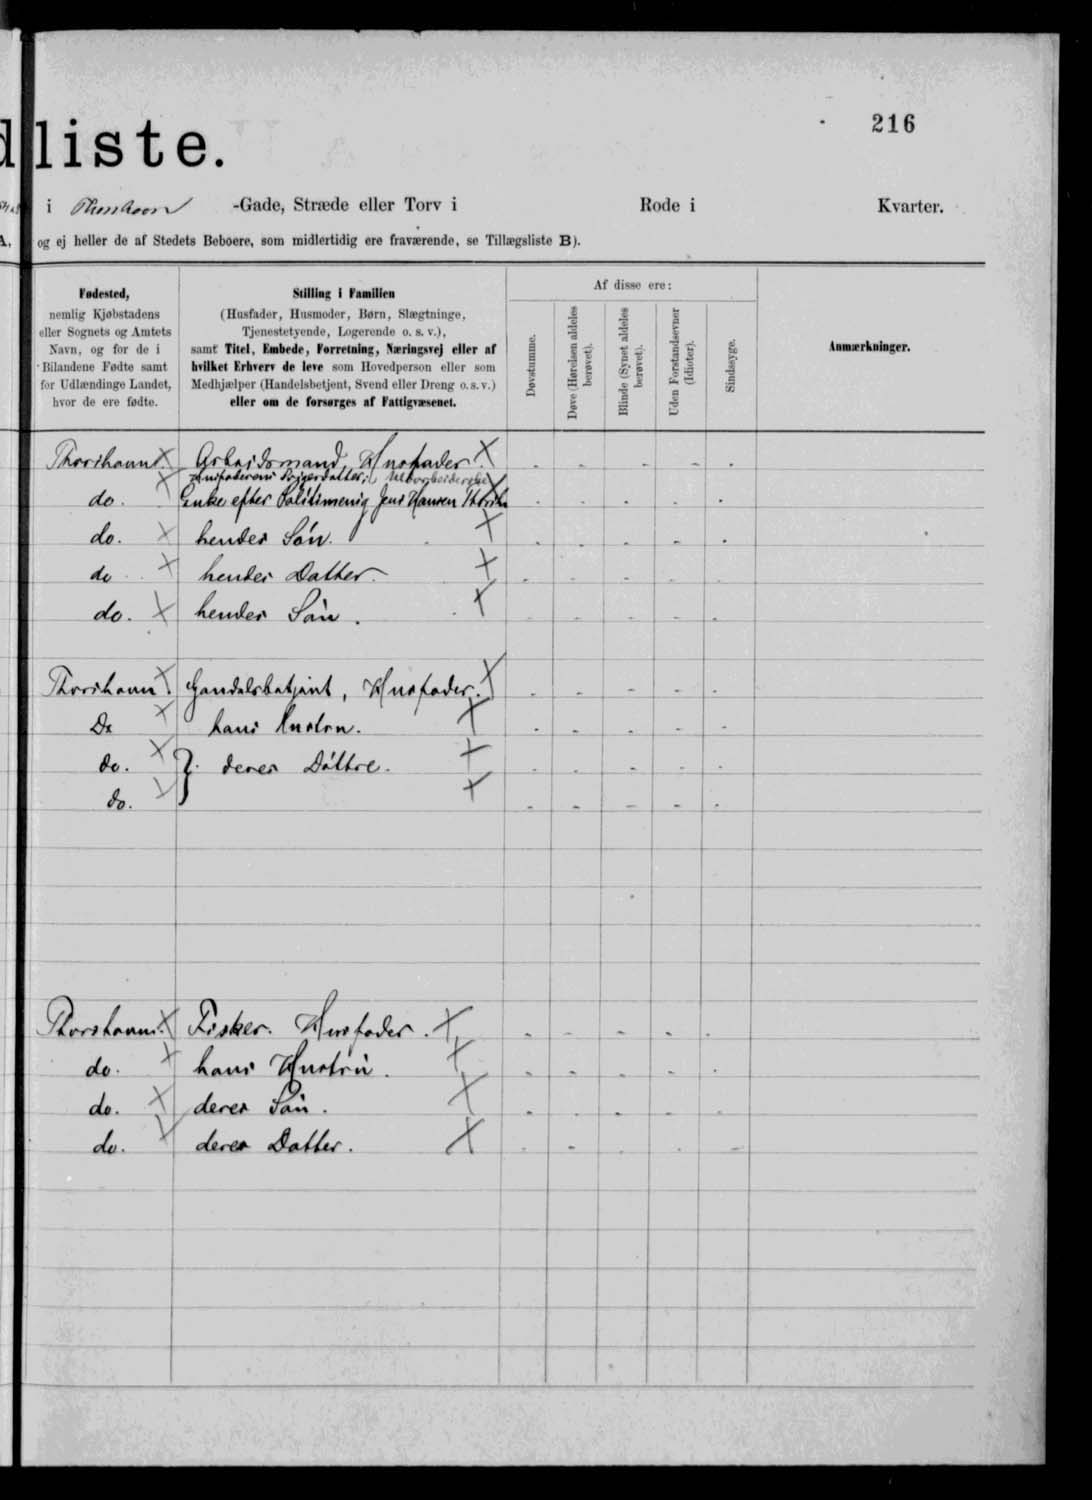 216
dliste.
i Thorshavn -Gade, Stræde eller Torv i Rode i Kvarter.
A, og ej heller de af Stedets Beboere, som midlertidig ere fraværende, se Tillægsliste B).
Fødested,
nemlig Kjøbstadens
eller Sognets og Amtets
Navn, og for de i
Bilandene Fødte samt
for Udlændinge Landet,
hvor de ere fødte.
Stilling i Familien
(Husfader, Husmoder, Børn, Slægtninge,
Tjenestetyende, Logerende o. s. v.),
samt Titel, Embede, Forretning, Næringsvej eller af
hvilket Erhverv de leve som Hovedperson eller som
Medhjælper (Handelsbetjent, Svend eller Dreng o. s. v.)
eller om de forsørges af Fattigvæsenet.
Af disse ere:
Døvstumme.
Døve (Hørelsen aldeles
berøvet).
Blinde (Synet aldeles
berøvet).
Uden Forstandsevner
(Idioter).
Sindssyge.
Anmærkninger.
Thorshavn. X Arbeidsmand, Husfader. X - - - - -
Husfaderens Svigerdatter; Uldarbeiderske
do. X Enke efter Politimenig Jens Hansen Thorsh X - - - - -
do. X hendes Søn. X - - - - -
do X hendes Datter. X - - - - -
do. X hendes Søn. X - - - - -
Thorshavn. X Handelsbetjent, Husfader. X - - - - -
Do X hans Hustru. X - - - - -
do. X } deres Døttre. X - - - - -
do. X X - - - - -
Thorshavn. X Fisker. Husfader. X - - - - -
do. X hans Hustru. X - - - - -
do. X deres Søn. X - - - - -
do. X deres Datter. X - - - - -